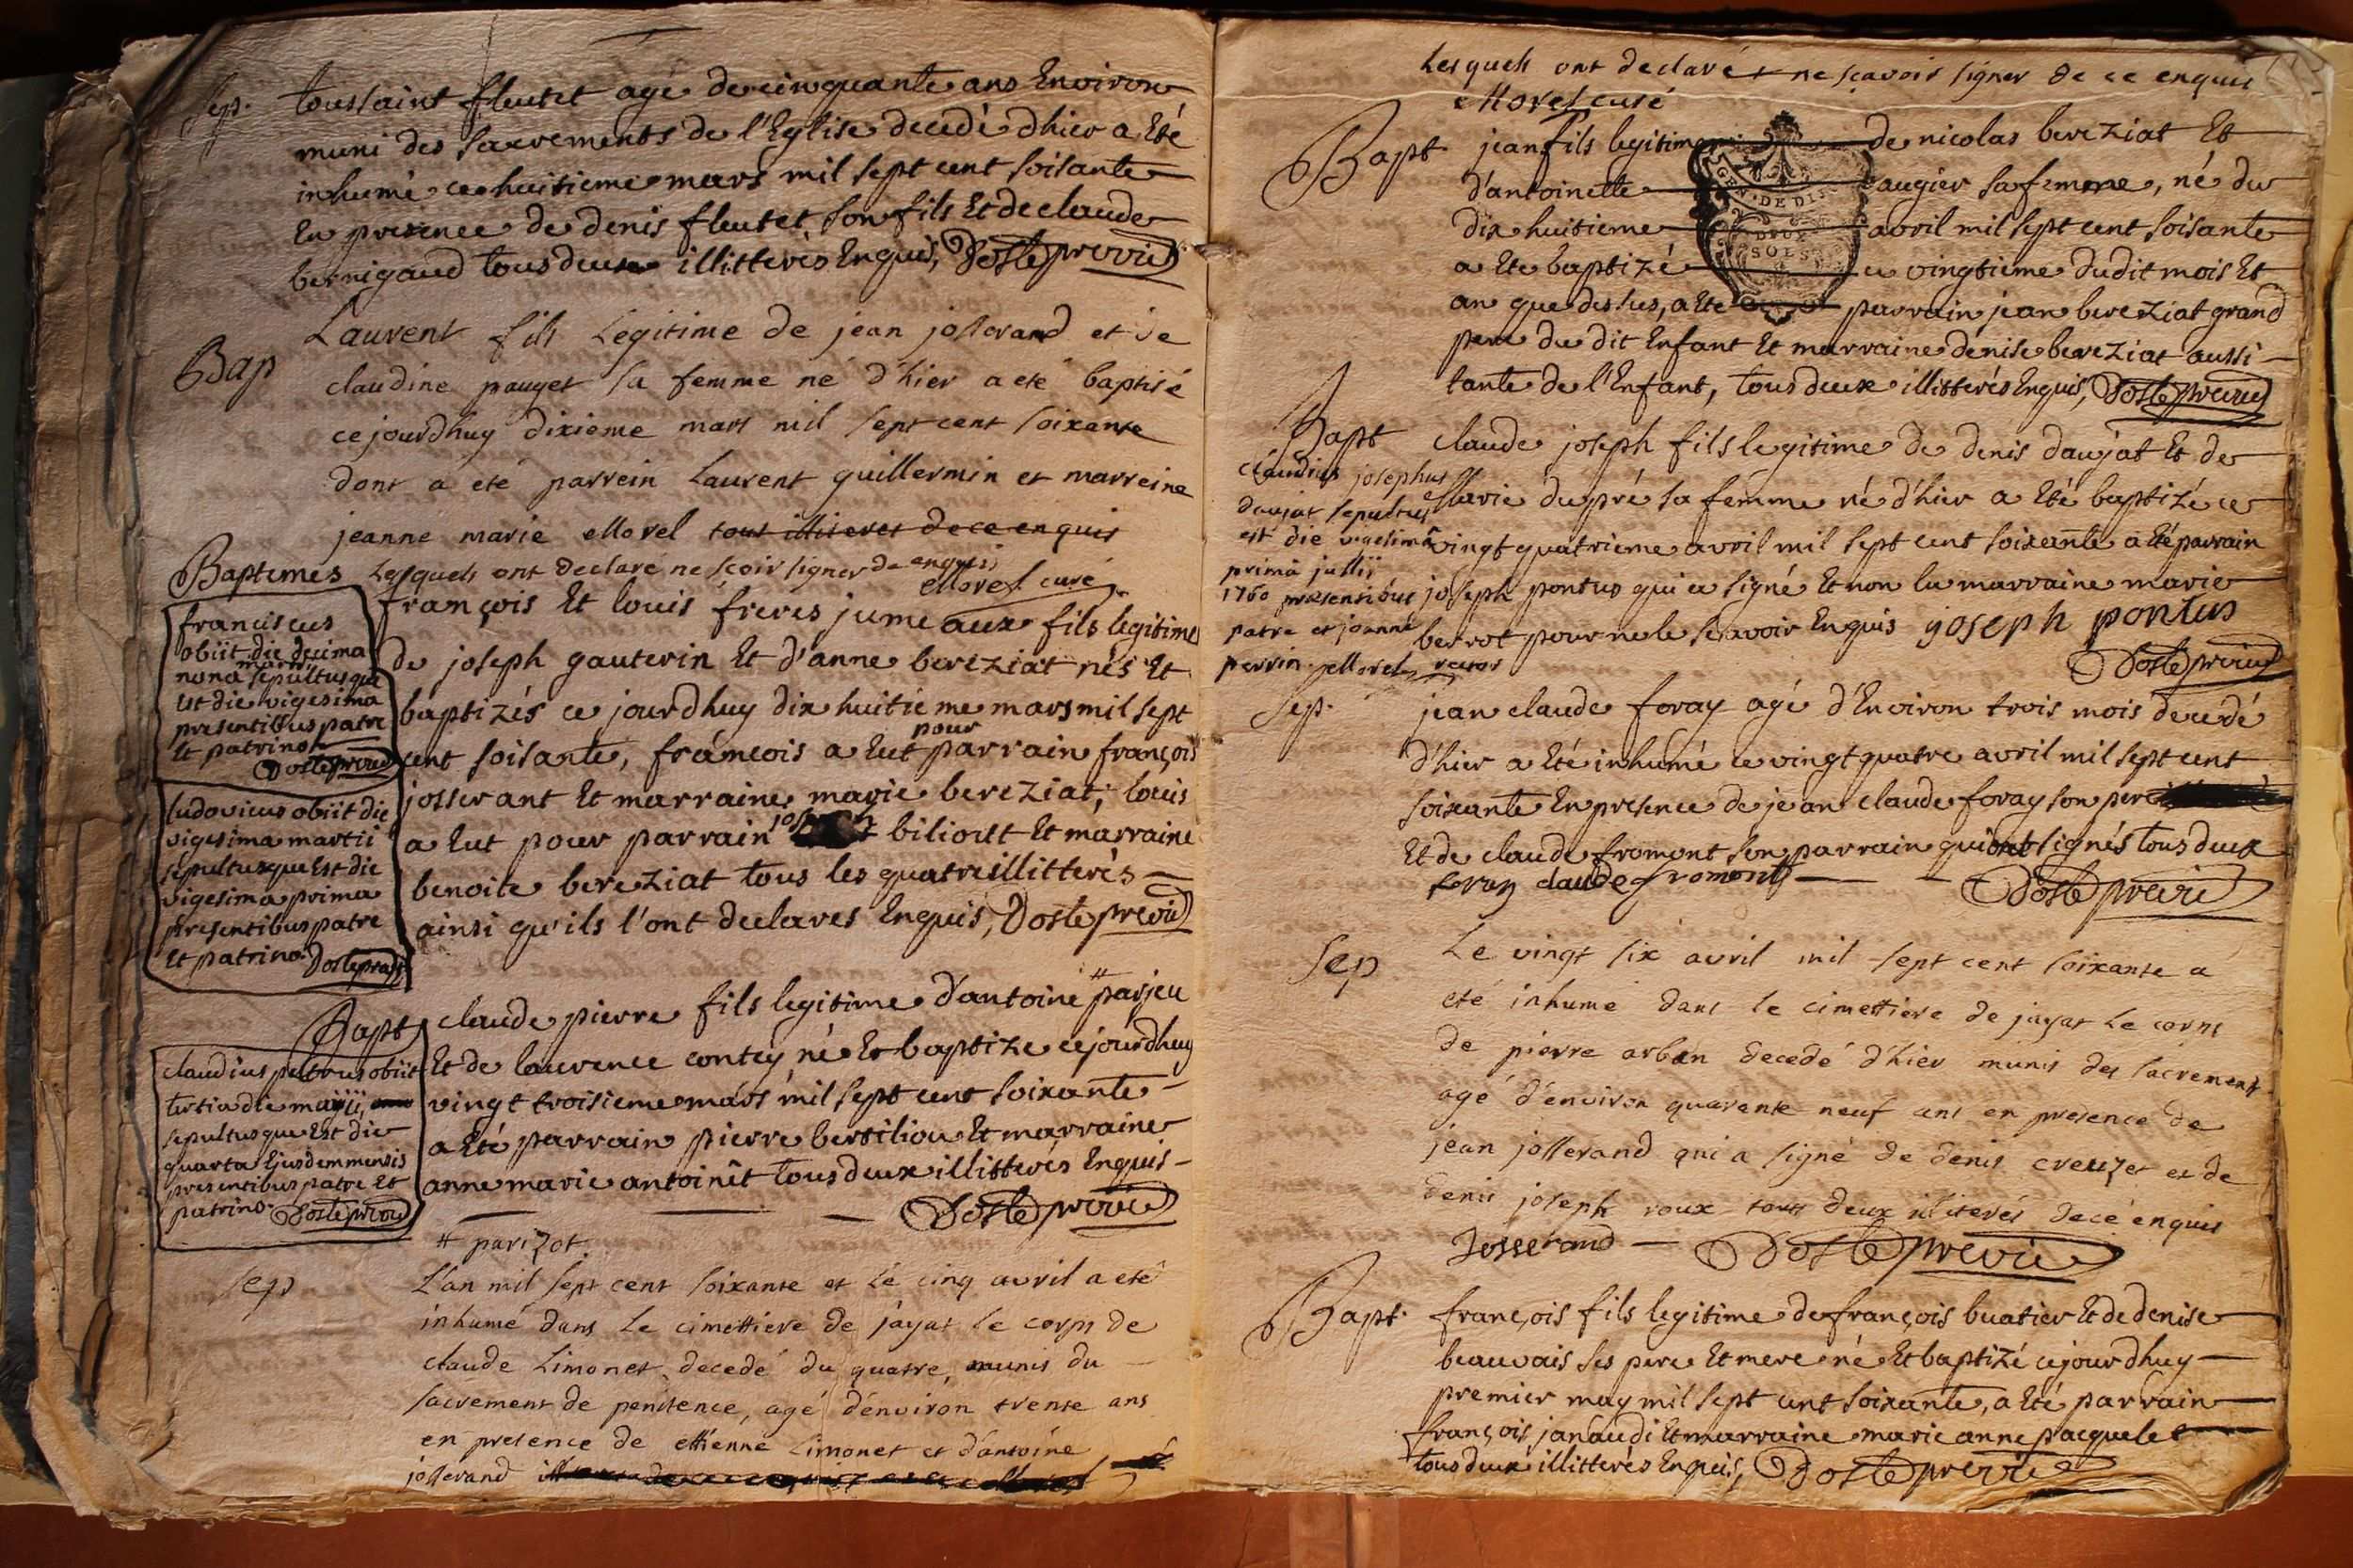 Sep. toussaint fleutet agé de cinquante ans Environ
muni des sacrements de l'Eglise decedé d'hier a Eté
inhumé ce huitieme mars mil sept cent soisante
En presence de denis fleutet son fils Et de claude
bernigaud tous deux illitterés Enquis, Doste previe
Bap Laurent fils Legitime de jean josserand et de
claudine pauget sa femme né d'hier a eté baptisé
cejourdhuy dixieme mars mil sept cent soixante
dont a eté parrein Laurent guillermin et marreine
jeanne marie Morel tous illiteres de ce enquis
Lesquels ont declaré ne scoir signer de enquis
Morel curé
Baptemes
françois Et louis freres jumeaux fils legitime
de joseph gauterin Et d'anne bereziat nés Et
baptizés ce jourdhuy dix huitiéme mars mil sept
cent soisante, françois a Eut pour parrain françois
josserant Et marraine marie bereziat, louis
a Eut pour parrain biliout Et marraine
benoite bereziat tous les quatre illitterés
ainsi qu'ils l'ont declares Enquis, Doste previe
franciscus
obiit die decima
nona martii sepultusque
Est die vigesima
presentibus patre
Et patrino
Doste previe
ludovicus obiit die
vigesima martii
sepultusque Est die
vigesima prima
presentibus patre
Et patrino. Doste previe
Bapt claude pierre fils legitime d'antoine # parjeu
Et de laurence contey né Et baptizé cejourdhuy
vingt troisieme mars mil sept cent soixante
a Eté parrain pierre bertiliou Et marraine
anne marie antoinêt tous deux illitterés Enquis
Doste previe
# parizot.
claudius petrus obiit
tertia die maÿii,
sepultusque Est die
quarta Ejusdem mensis
presentibus patre Et
patrino. Doste previe
Sep L'an mil sept cent soixante et Le cinq avril a eté
inhumé dans Le cimettiere de jayat le corps de
claude Limonet decedé du quatre, munis du
sacrement de penitence, agé d'environ trente ans
en presence de ettienne Limonet et d'antoine
josserand
Lesquels ont declaré ne sçavoir signer de ce enquis
Morel curé
Bapt jean fils legitime de nicolas bereziat Et
d'antoinette augier sa femme, né du
dix huitieme avril mil sept cent soisante
a Eté baptizé ce vingtieme dudit mois Et
an que dessus, a Eté parrain jean bereziat grand
pere du dit Enfant Et marraine denise bereziat aussi
tante de l'Enfant, tous deux illitterés Enquis, Doste previe
GEN. DE DI
DEUX
SOLS
Bapt claude joseph fils legitime de denis daujat Et de
Marie dupré sa femme né d'hier a Eté baptizé ce
vingt quatrieme avril mil sept cent soixante a Eté parrain
joseph pontus qui a signé Et non la marraine marie
berrot pour ne le sçavoir Enquis joseph pontus
Doste previe
claudius josephus
daujat sepultus
est die vigesimâ
primâ julii
1760 præsentibus
patre et joanne
perrin. Morel rector
Sep. jean claude foray agé d'Environ trois mois decedé
d'hier a Eté inhumé ce vingt quatre avril mil sept cent
soixante En presence de jean claude foray son pere
Et de claude fromont son parrain qui ont signés tous deux
foray claude fromont Doste previe
Sep Le vingt six avril mil sept cent soixante a
eté inhumé dans le cimettiere de jayat Le corps
de pierre arban decedé d'hier munis des sacrements
agé d'environ quarante neuf ans en presence de
jean josserand qui a signé de denis creuzet et de
denis joseph roux tous deux illiterés de ce enquis
Josserand Doste previe
Bapt. françois fils legitime de françois buatier Et de denise
beauvais ses pere Et mere né Et baptizé cejourdhuy
premier may mil sept cent soixante, a Eté parrain
françois janaudi Et marraine marie anne pacquelet
tous deux illitterés Enquis, Doste previe